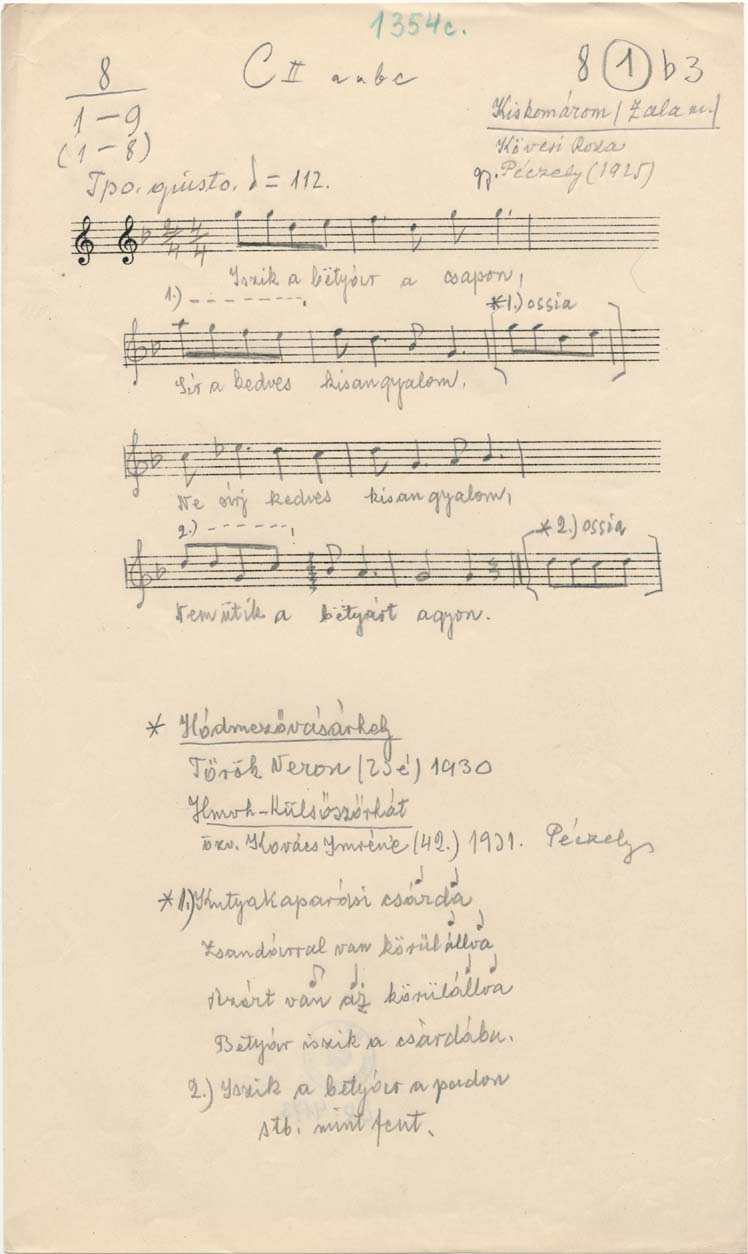 1354c.
8
1-9
(1-8)
C II a a b c
8 1 b3
Kiskomárom (Zala m.)
Kövesi Roza
gy. Péczely (1925)
Tpo. giusto. = 112.
2/4 4/4
Iszik a bëtyár a csapon,
1.)
*1.) ossia
Sír a kedves kisangyalom.
Ne sírj kedves kisangyalom,
2.)
*2.) ossia
Nem ütik a bëtyárt agyon.
* Hódmezővásárhely
Török Neron (23é) 1930
Hmvh-Külsőszőrhát
özv. Kovács Imréné (42.) 1931. Péczely
*1.) Kutyakaparósi csárda
Zsandárral van körülállva
Azért van az körülállva
Betyár iszik a csárdába.
2.) Iszik a bëtyár a padon
stb. mint fent.